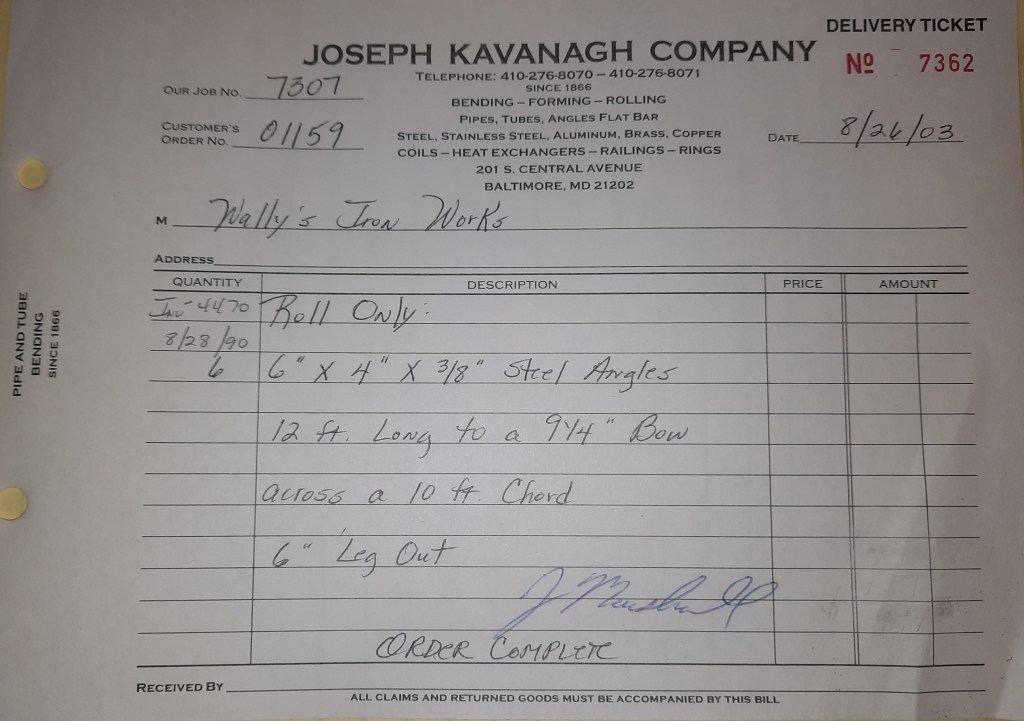 DELIVERY TICKET
JOSEPH KAVANAGH COMPANY
Nº 7362
TELEPHONE: 410-276-8070 – 410-276-8071
SINCE 1866
OUR JOB NO. 7307
BENDING – FORMING – ROLLING
PIPES, TUBES, ANGLES FLAT BAR
CUSTOMER'S ORDER NO. 01159
STEEL, STAINLESS STEEL, ALUMINUM, BRASS, COPPER
DATE 8/26/03
COILS – HEAT EXCHANGERS – RAILINGS – RINGS
201 S. CENTRAL AVENUE
BALTIMORE, MD 21202
M Wally's Iron Works
ADDRESS
QUANTITY DESCRIPTION PRICE AMOUNT
Inv-4470 Roll Only:
8/28/90
6 6" X 4" X 3/8" Steel Angles
12 ft. Long to a 9 1/4" Bow
across a 10 ft. Chord
6" Leg Out
J Marshall
ORDER COMPLETE
RECEIVED BY
ALL CLAIMS AND RETURNED GOODS MUST BE ACCOMPANIED BY THIS BILL
PIPE AND TUBE
BENDING
SINCE 1866